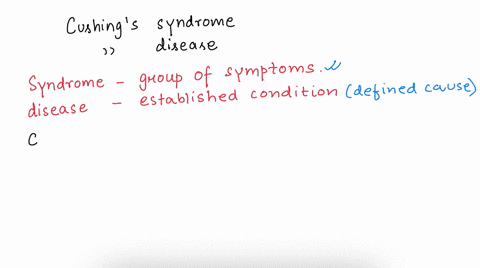 Cushing's syndrome
,, disease
Syndrome - group of symptoms.
disease - established condition (defined cause)
C